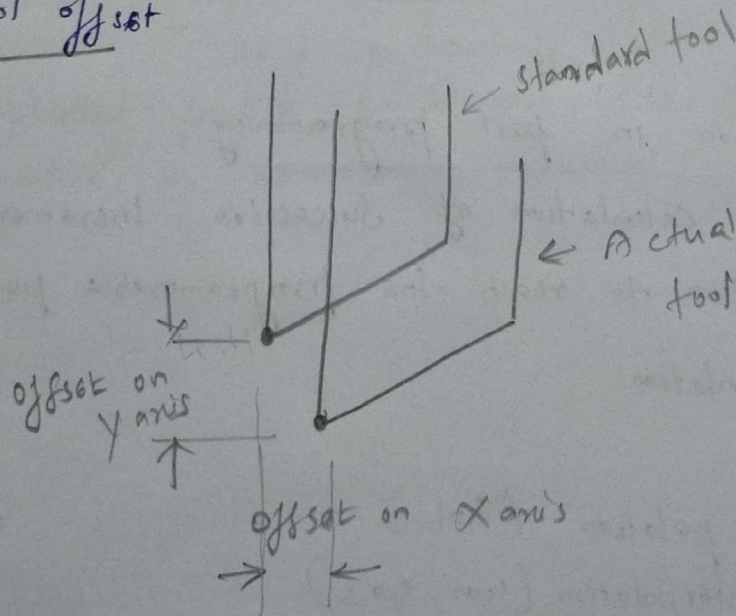 offset
Standard tool
Actual
tool
offset on
Y axis
offset on X axis